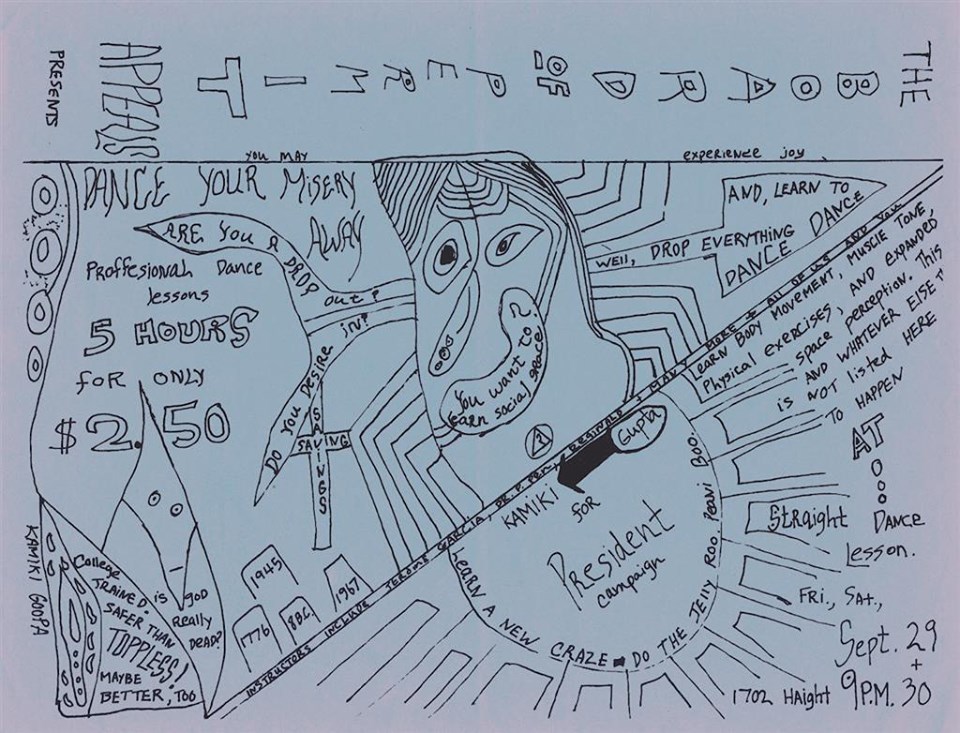 THE
BOARD
OF
PERMIT
APPEALS
PRESENTS
YOU MAY
experience joy
DANCE YOUR MISERY
AWAY
ARE YOU A DROP
out?
Proffesional Dance
lessons
5 HOURS
for ONLY
$2.50
DO YOU DESIRE
in?
SAVING
SAVINGS
You want to
learn social graces?
WELL, DROP EVERYTHING
AND, LEARN TO
DANCE DANCE DANCE
INSTRUCTORS INCLUDE JEROME GARCIA, DR. P. PEN, REGINALD + MANY MORE + ALL OF US AND YOU
LEARN BODY MOVEMENT, MUSCLE TONE,
Physical exercises, AND EXPANDED
space perception. This
AND WHATEVER ELSE
is NOT listed HERE
TO HAPPEN
AT
Straight Dance
lesson.
FRI., SAT.,
Sept. 29
+
30
9 P.M.
1702 HAIGHT
Gupta
KAMIKI
for
President
campaign
LEARN A NEW CRAZE - DO THE JELLY ROO PEANI BOO.
1945
1776
886
1967
KAMIKI GOOPA
College
TRAINED.
SAFER THAN
TOPPLESS!
MAYBE
BETTER, TOO
is god
really
DEAD?